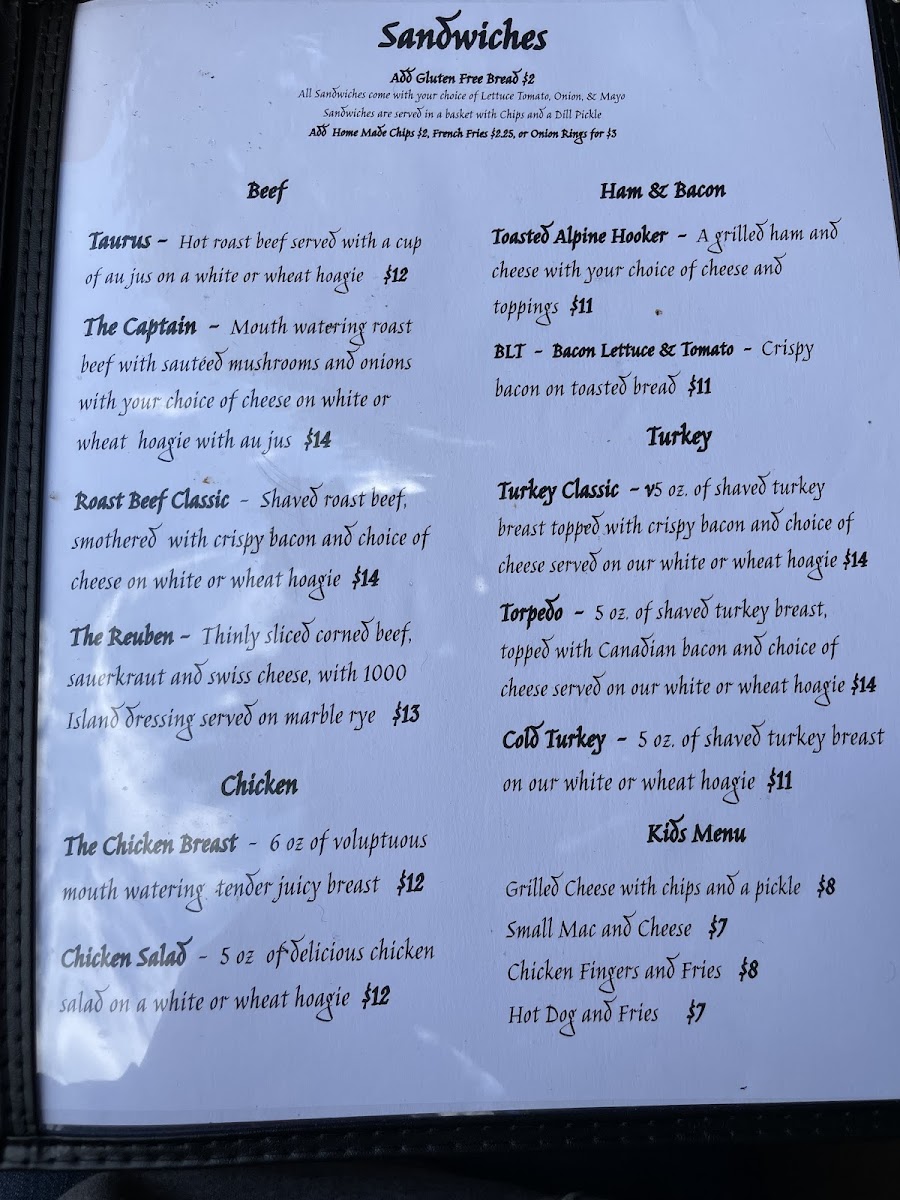 Sandwiches
Add Gluten Free Bread $2
All Sandwiches come with your choice of Lettuce Tomato, Onion, & Mayo
Sandwiches are served in a basket with Chips and a Dill Pickle
Add Home Made Chips $2, French Fries $2.25, or Onion Rings for $3
Beef
Taurus - Hot roast beef served with a cup
of au jus on a white or wheat hoagie $12
The Captain - Mouth watering roast
beef with sautéed mushrooms and onions
with your choice of cheese on white or
wheat hoagie with au jus $14
Roast Beef Classic - Shaved roast beef,
smothered with crispy bacon and choice of
cheese on white or wheat hoagie $14
The Reuben - Thinly sliced corned beef,
sauerkraut and swiss cheese, with 1000
Island dressing served on marble rye $13
Chicken
The Chicken Breast - 6 oz of voluptuous
mouth watering tender juicy breast $12
Chicken Salad - 5 oz of delicious chicken
salad on a white or wheat hoagie $12
Ham & Bacon
Toasted Alpine Hooker - A grilled ham and
cheese with your choice of cheese and
toppings $11
BLT - Bacon Lettuce & Tomato - Crispy
bacon on toasted bread $11
Turkey
Turkey Classic - v5 oz. of shaved turkey
breast topped with crispy bacon and choice of
cheese served on our white or wheat hoagie $14
Torpedo - 5 oz. of shaved turkey breast,
topped with Canadian bacon and choice of
cheese served on our white or wheat hoagie $14
Cold Turkey - 5 oz. of shaved turkey breast
on our white or wheat hoagie $11
Kids Menu
Grilled Cheese with chips and a pickle $8
Small Mac and Cheese $7
Chicken Fingers and Fries $8
Hot Dog and Fries $7